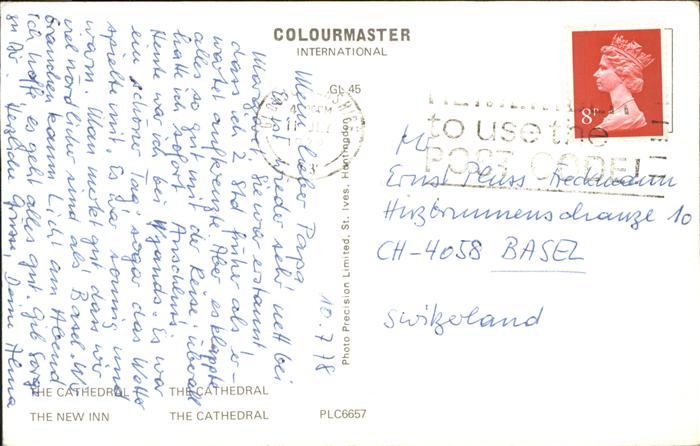 COLOURMASTER
INTERNATIONAL
GL 45
10.7.78
Mein lieber Papa
Es ist wieder sehr nett bei
Margrit. Sie war erstaunt
dass ich 2 Std früher als er-
wartet aufkreuzte. Aber es klappte
alles so gut mit der Reise, überall
hatte ich sofort Anschluss.
Heute war ich bei Es war
ein schöner Tag, sogar das Wetter
spielte mit. Es war sonnig und
warm. Man merkt gut dass wir
viel nördlicher sind als Basel. Wir
brauchen kaum Licht am Abend
Ich hoffe es geht alles gut. Gib Sorg
zu Dir. Herzliche Grüsse, Deine
8P
to use the
POST CODE
Ernst Pluss Heckmann
Hirzbrunnenschanze 10
CH-4058 BASEL
Switzerland
Photo Precision Limited, St. Ives, Huntingdon
THE CATHEDRAL THE CATHEDRAL
THE NEW INN THE CATHEDRAL PLC6657